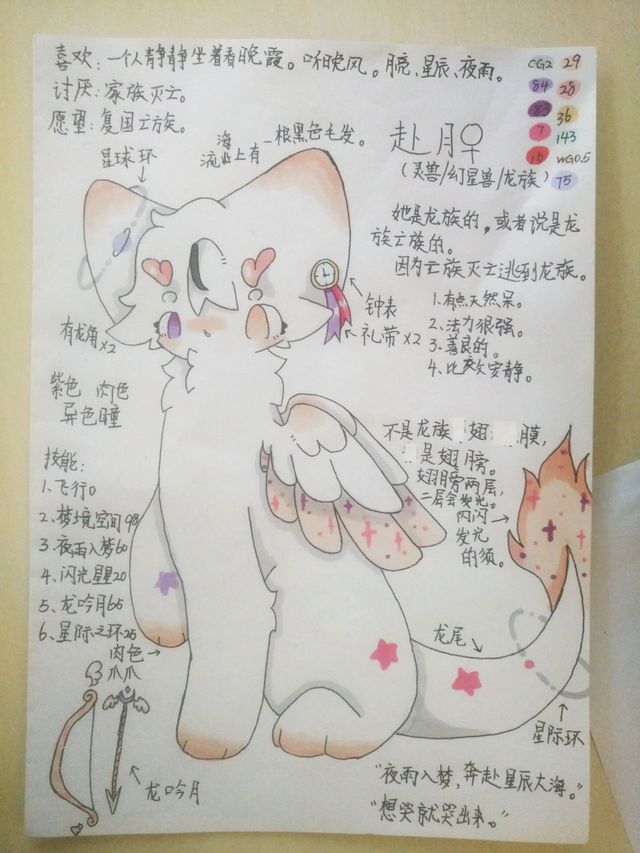 喜欢：一个人静静坐着看晚霞。吹晚风。月亮、星辰、夜雨。
讨厌：家族灭亡。
愿望：复国亡族。
CG2 29
84 28
83 36
7 143
16 WG0.5
75
星球环
海
流业上有一根黑色毛发。
赴月♀
(灵兽/幻星兽/龙族)
她是龙族的，或者说是龙
族亡族的。
因为亡族灭亡逃到龙族。
1.有点天然呆。
2.法力很强。
3.善良的。
4.比较安静。
钟表
礼带×2
有龙角×2
紫色 肉色
异色瞳
技能：
1、飞行0
2、梦境空间98
3、夜雨入梦60
4、闪光星星20
5、龙吟月65
6、星际之环25
不是龙族 翅 膜，
是翅膀。
翅膀两层，
二层会发光。
闪闪
发光
的须。
龙尾
肉色
爪爪
星际环
龙吟月
“夜雨入梦，奔赴星辰大海。”
“想哭就哭出来。”